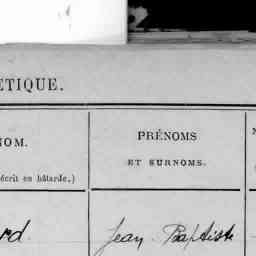 ETIQUE.
NOM.
PRÉNOMS
ET SURNOMS.
écrit en bâtarde.)
rd.
Jean Baptiste